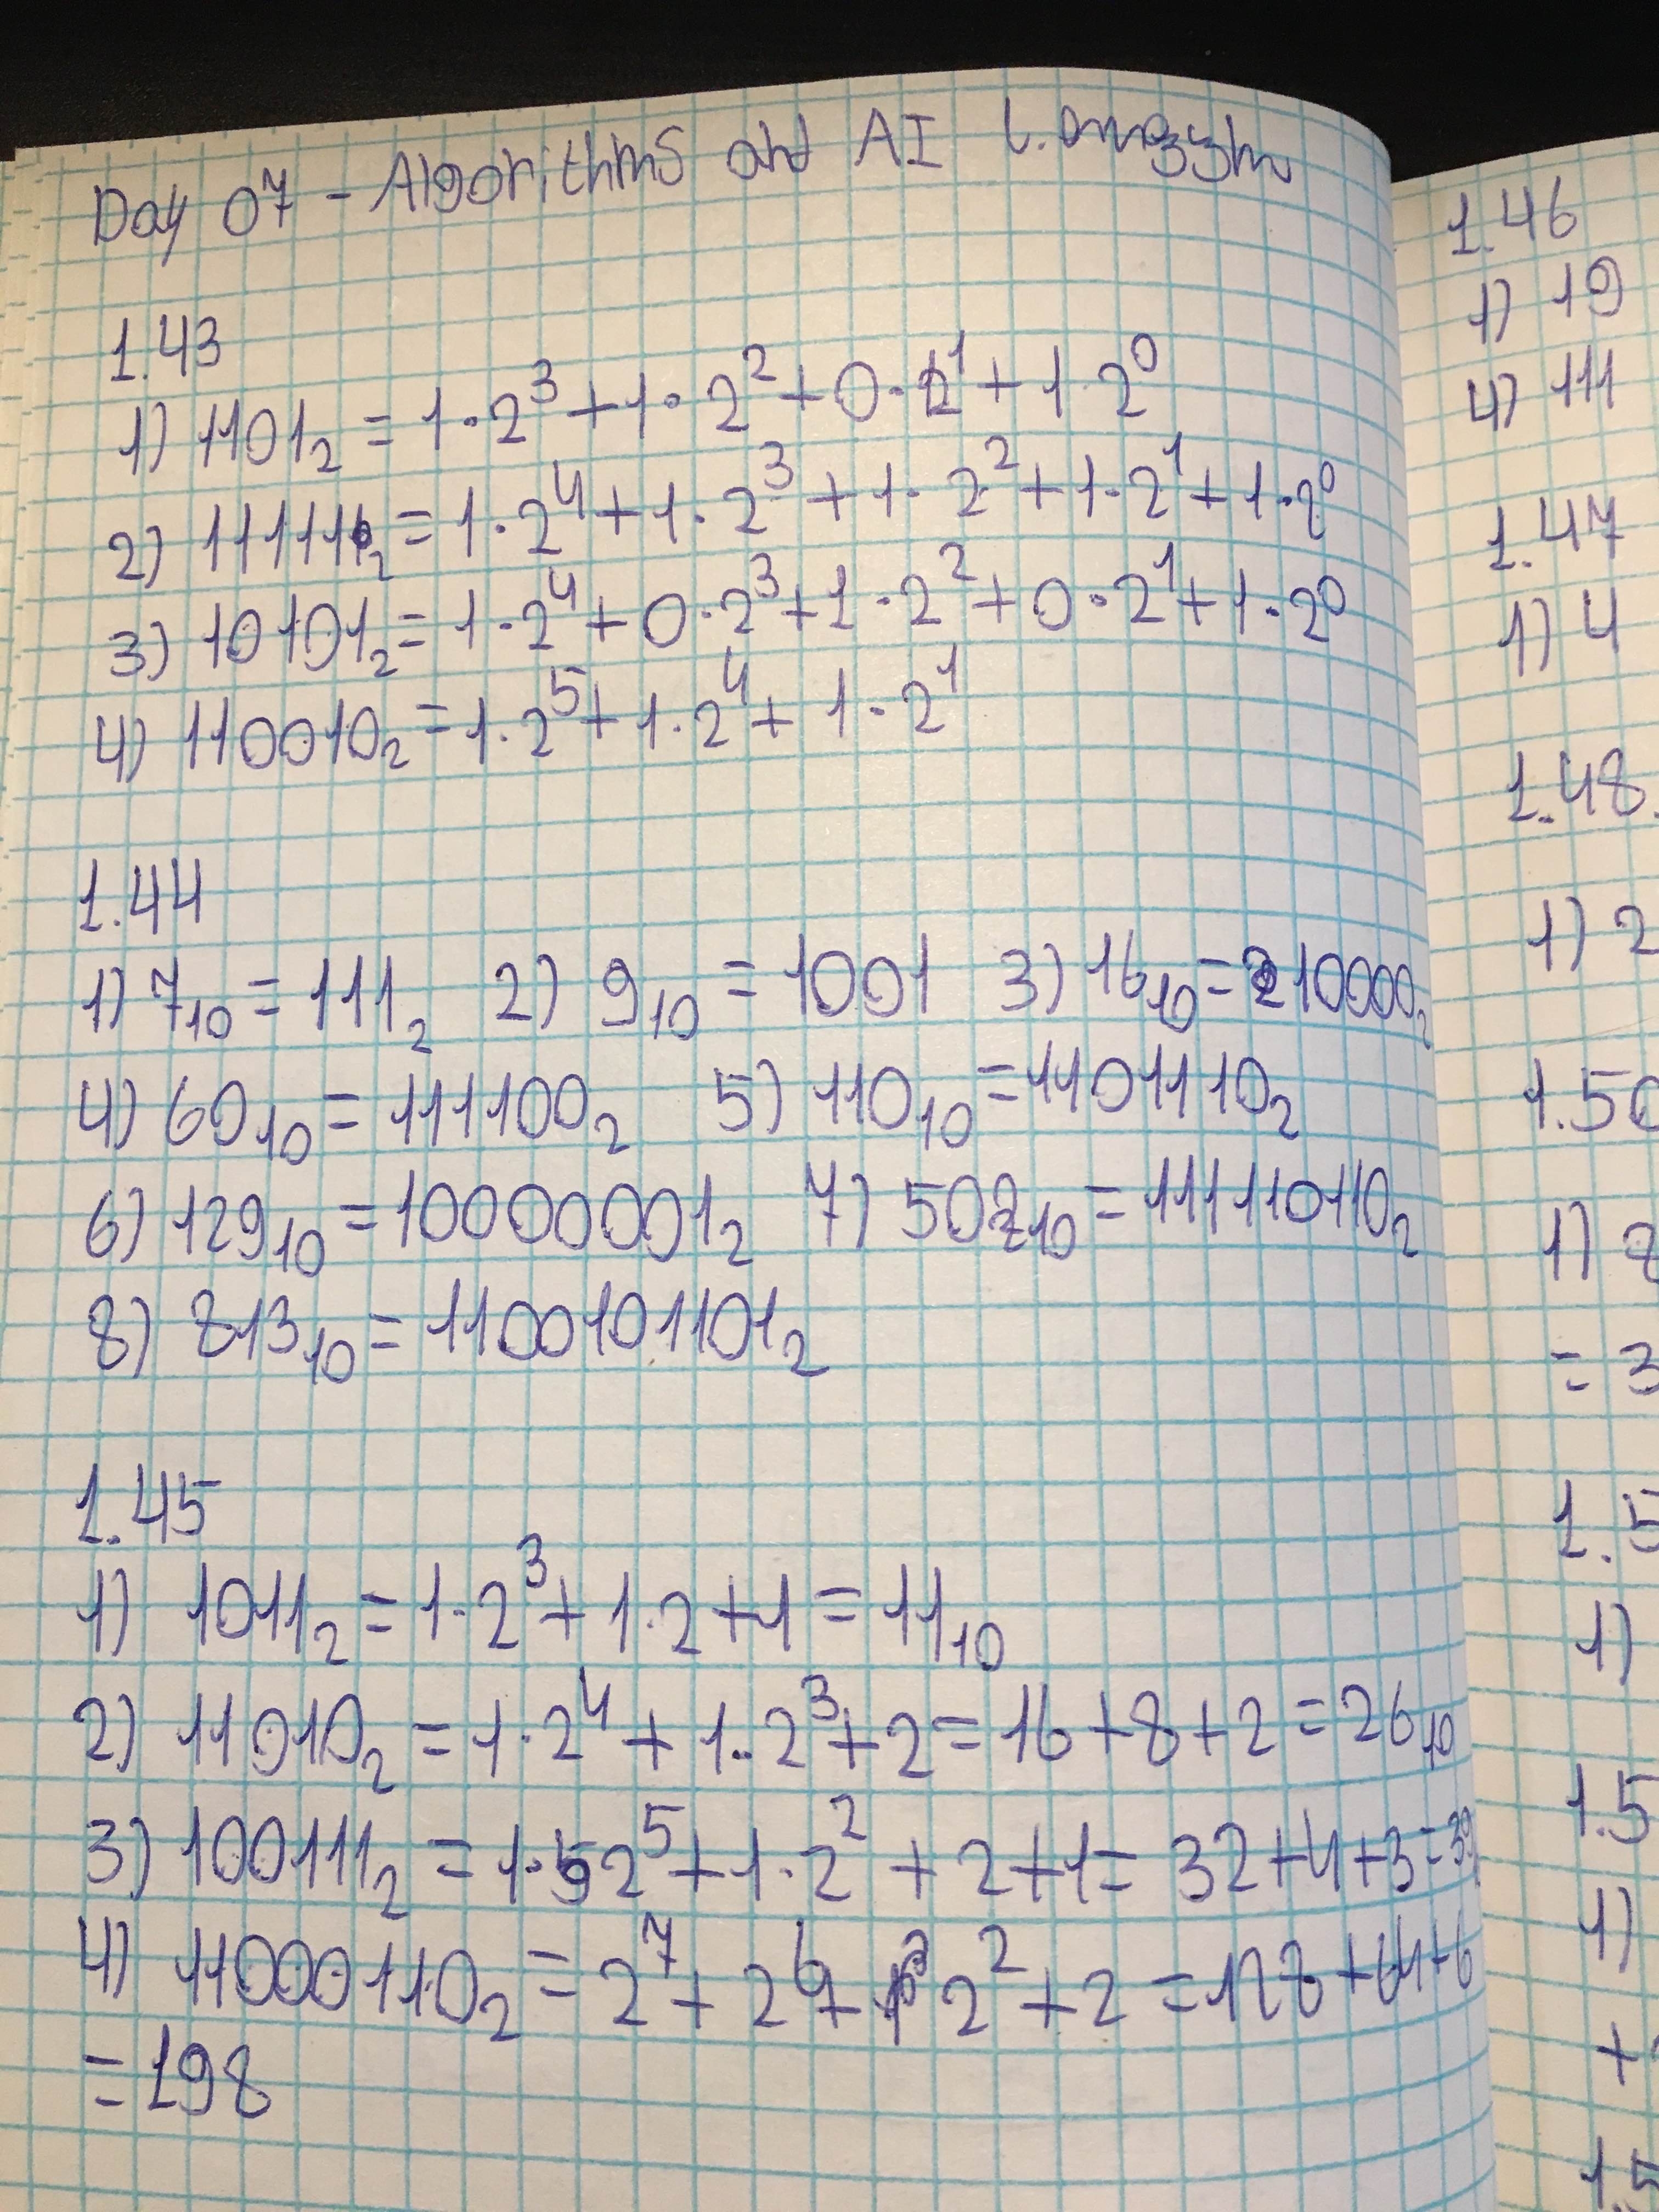 Day 07 - Algorithms and AI
1.43
1) 1101₂ = 1·2³+1·2²+0·2¹+1·2⁰
2) 11111₂ = 1·2⁴+1·2³+1·2²+1·2¹+1·2⁰
3) 10101₂ = 1·2⁴+0·2³+1·2²+0·2¹+1·2⁰
4) 110010₂ = 1·2⁵+1·2⁴+1·2¹
1.44
1) 7₁₀ = 111₂ 2) 9₁₀ = 1001 3) 16₁₀ = 10000₂
4) 60₁₀ = 111100₂ 5) 110₁₀ = 1101110₂
6) 129₁₀ = 10000001₂ 7) 502₁₀ = 111110110₂
8) 813₁₀ = 1100101101₂
1.45
1) 1011₂ = 1·2³+1·2+1 = 11₁₀
2) 11010₂ = 1·2⁴+1·2³+2 = 16+8+2 = 26₁₀
3) 100111₂ = 1·2⁵+1·2²+2+1 = 32+4+3=39
4) 11000110₂ = 2⁷+2⁶+2²+2 = 128+64+6
=198
1.46
1) 19
4) 111
1.47
1) 4
1.48.
1) 2
1.50
1)
= 3
1.5
1)
1.5
1)
+
1.5